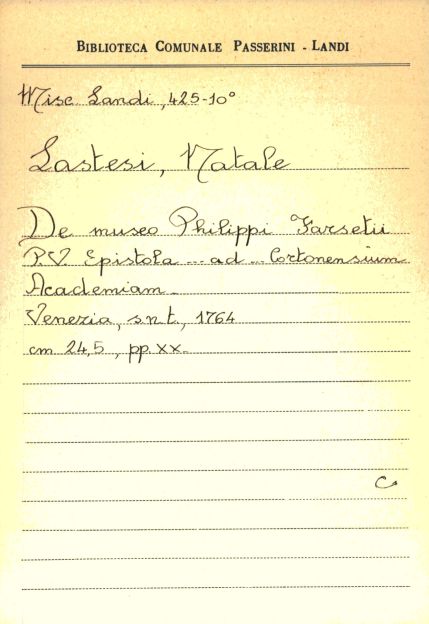 BIBLIOTECA COMUNALE PASSERINI - LANDI
Misc Landi, 425-10°
Lastesi, Natale
De museo Philippi Farsetii
P.V. Epistola ... ad ... Cortonensium
Academiam.
Venezia, s.n.t., 1764
cm 24,5, pp. XX.
C